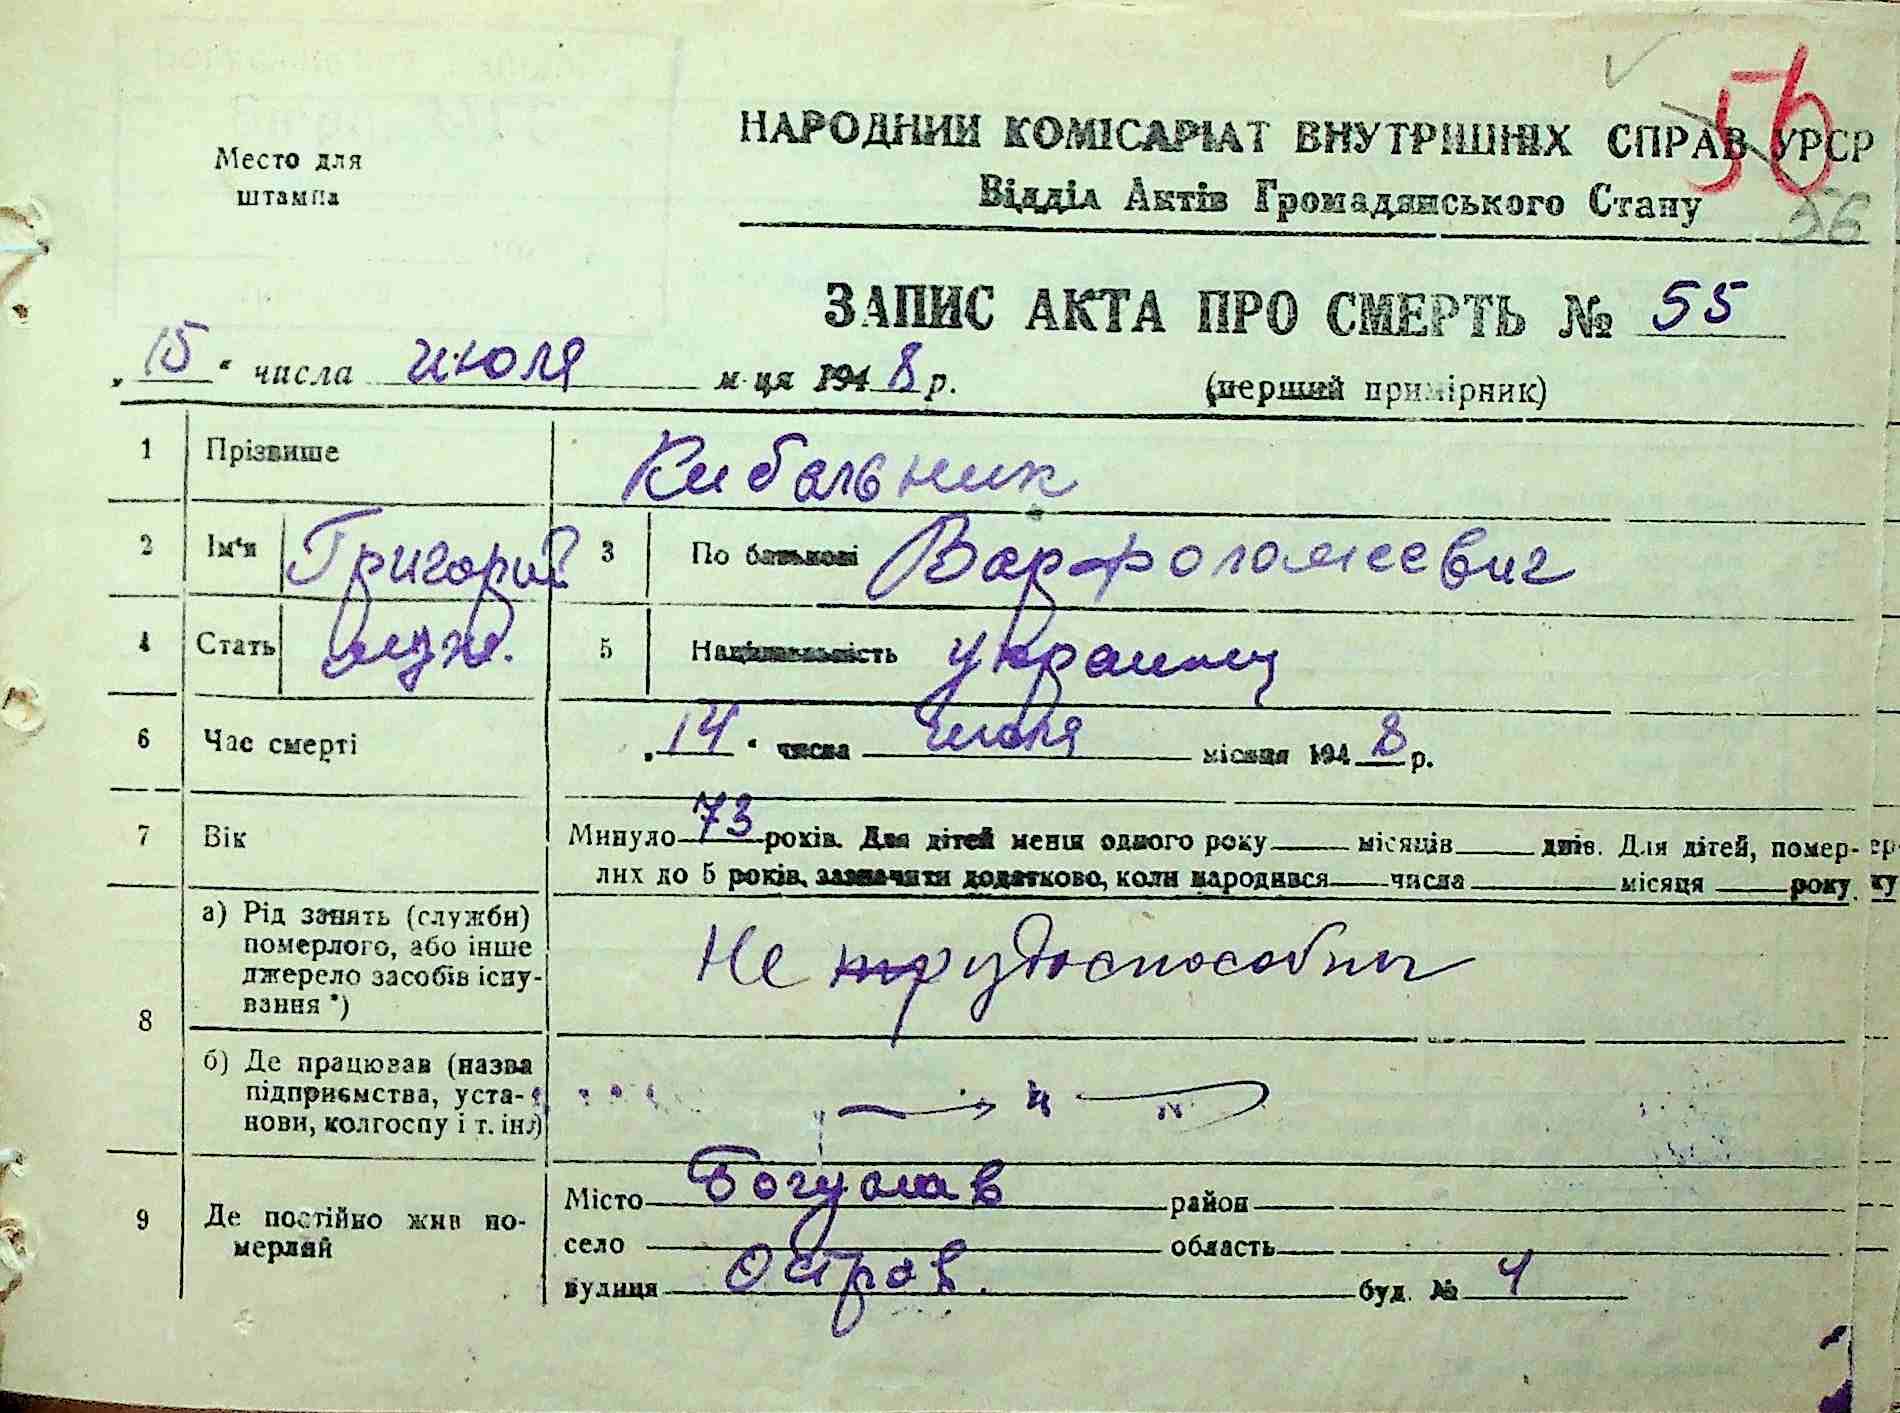 56
НАРОДНИЙ КОМІСАРІАТ ВНУТРІШНІХ СПРАВ УРСР
Место для
штампа
Відділ Актів Громадянського Стану
56
ЗАПИС АКТА ПРО СМЕРТЬ № 55
„15“ числа июля м-ця 1948 р. (перший примірник)
1 Прізвише Кибальник
2 Ім'я Григорий 3 По батькові Варфоломеевич
4 Стать муж. 5 Національність украинец
6 Час смерті „14“ числа июля місяця 1948 р.
7 Вік Минуло 73 років. Для дітей менш одного року місяців днів. Для дітей, помер-
лих до 5 років, зазначити додатково, коли народився числа місяця року
8 а) Рід занять (служби) померлого, або інше джерело засобів існу-вання *) Не трудоспособный
б) Де працював (назва підприємства, уста-нови, колгоспу і т. ін.)
9 Де постійно жив по-мерлий Місто Богуслав район
село область
вулиця Остров. буд. № 4